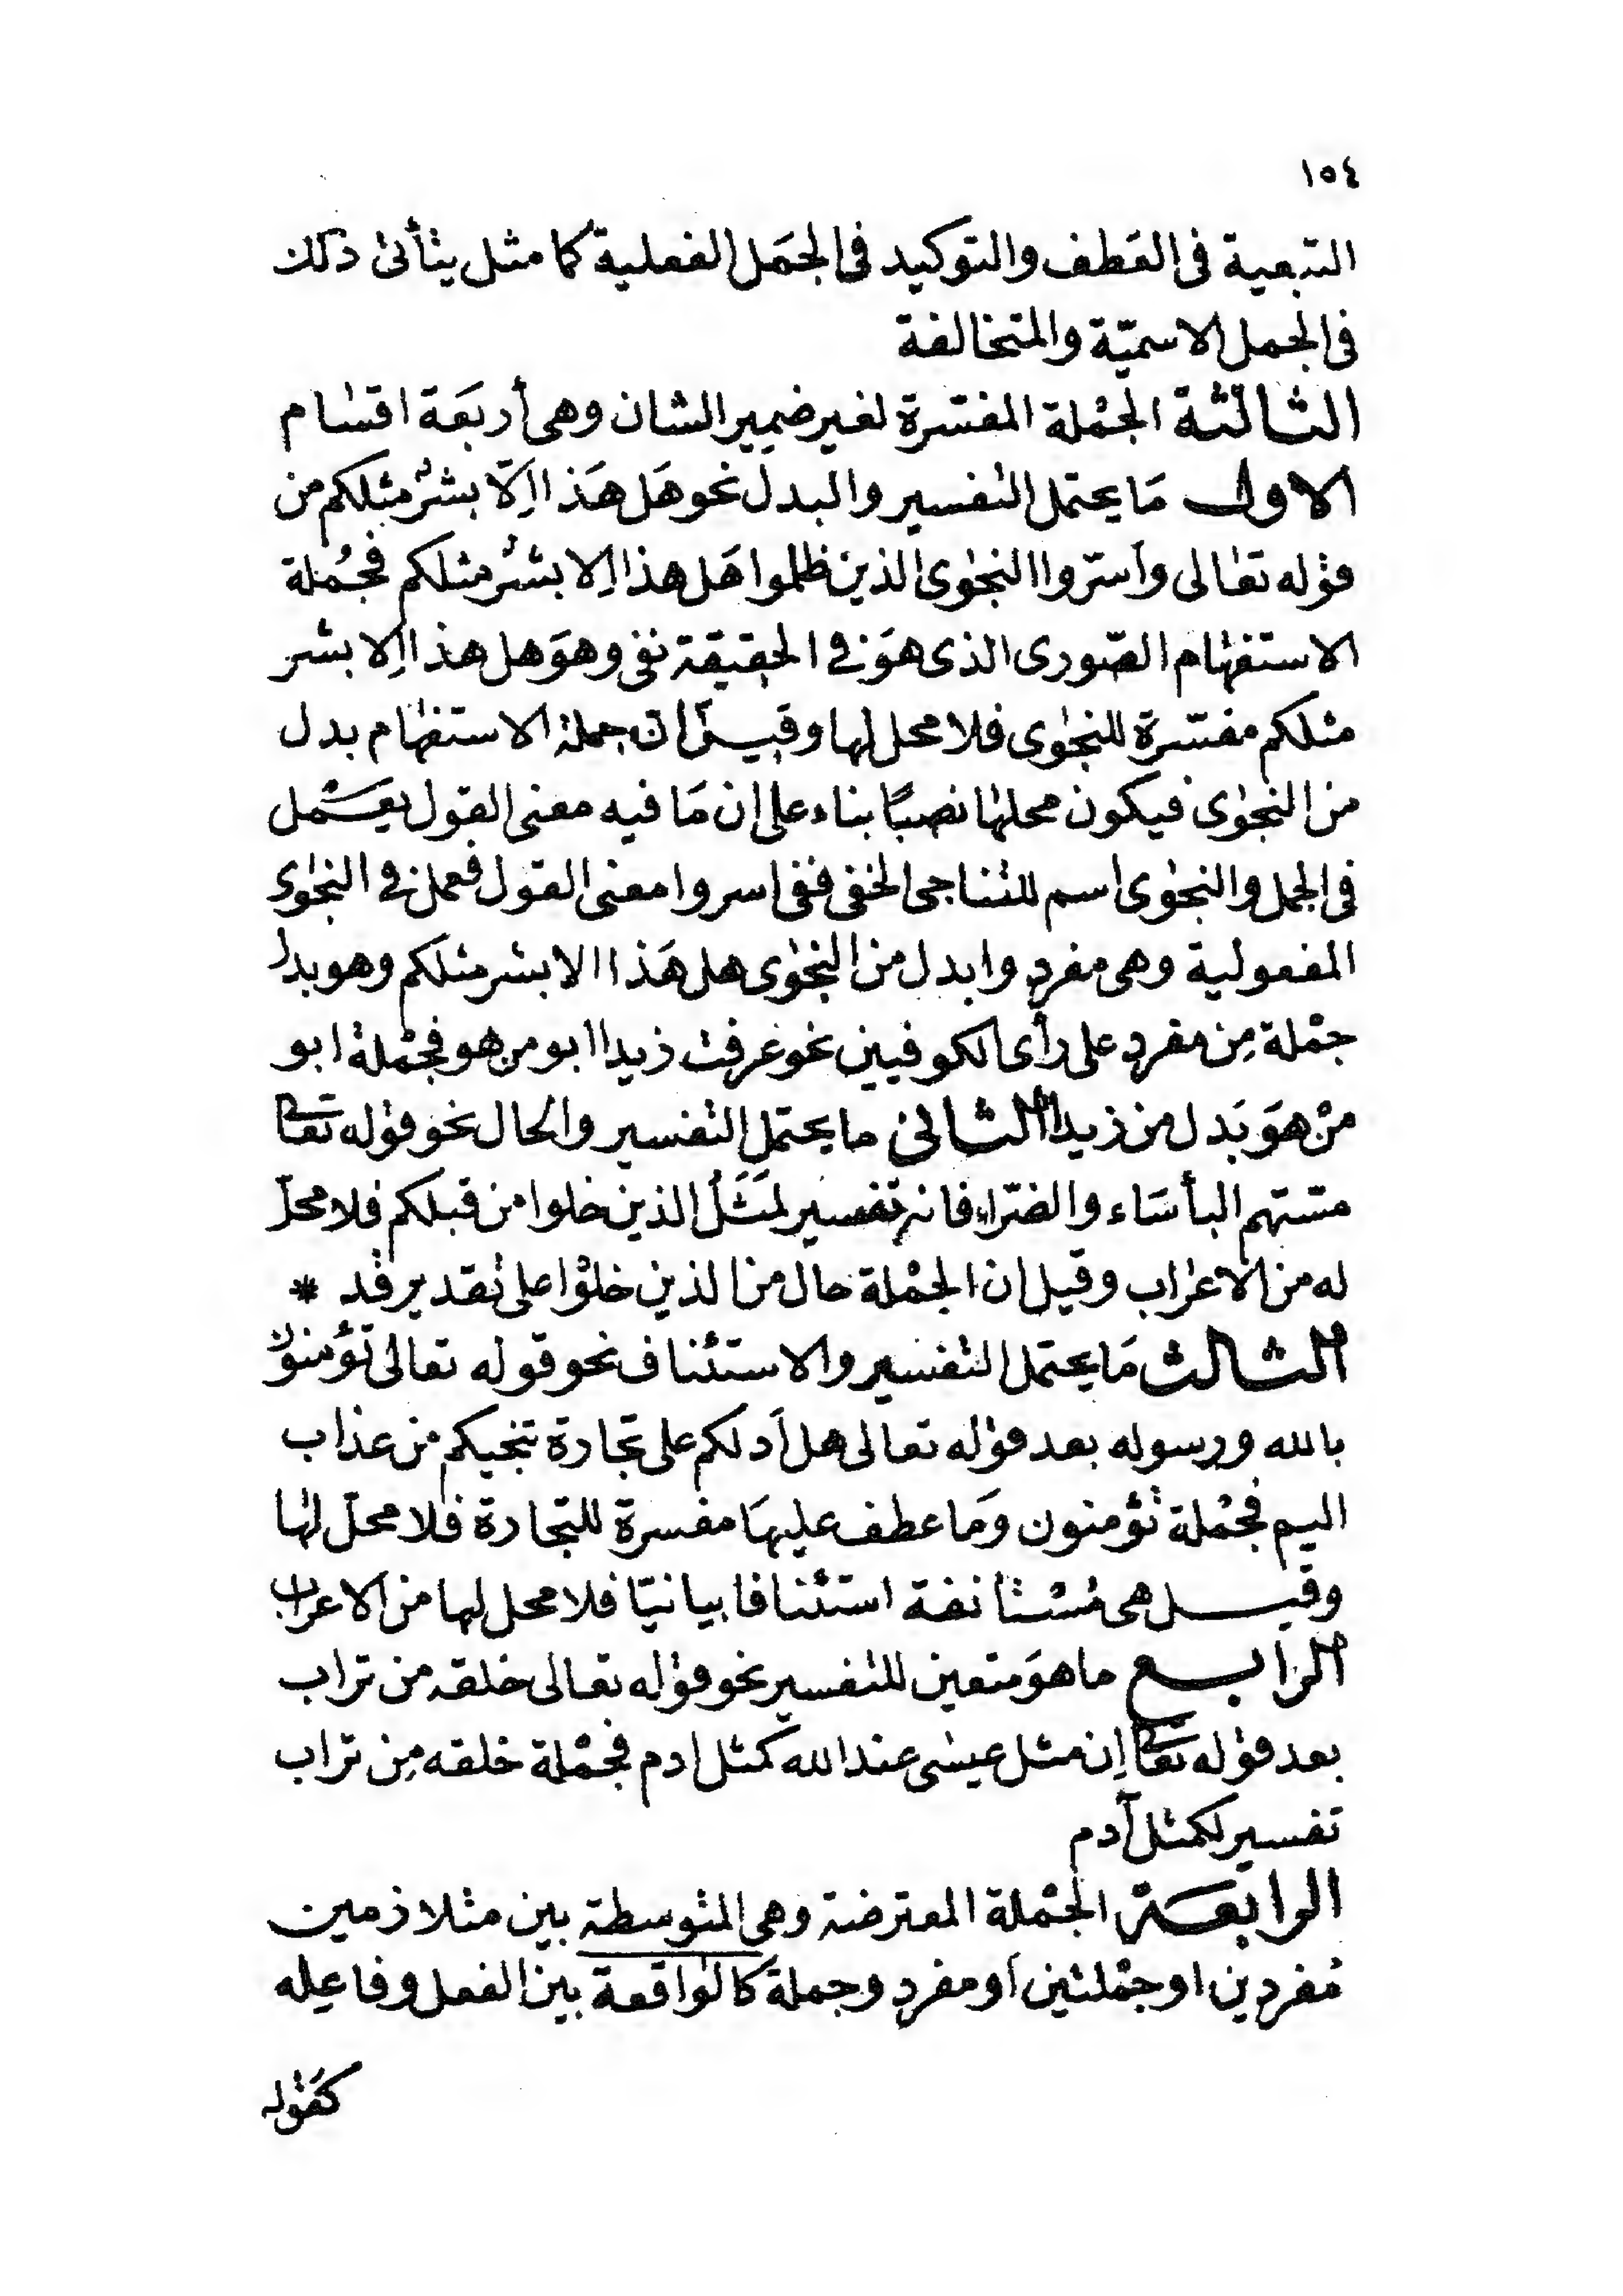 ١٥٤
التبعية فى العَطف والتوكيد فى الجمَل الفعلية كما مثل يتأتى ذلك
فى الجمل الاسميّة والمتخالفة
الثالثة الجمْلة المفسّرة لغير ضمير الشان وهى أربعَة اقسام
الاول مَا يحتمل التفسير والبدل نحو هَل هَذا اِلّا بشرٌ مثلكم من
قوله تعالى وأسرّوا النجوى الذين ظلموا هَل هذا اِلا بشرٌ مثلكم فجُملة
الاستفهام الصّورى الذى هوَ فى الحقيقة نفى وهوَ هل هذا اِلا بشر
مثلكم مفسّرة للنجوى فلا محل لها وقيل اَن جملة الاستفهام بدل
من النجوى فيكون محلها نصبًا بناء على ان مَا فيه معنى القول يعمل
فى الجمل والنجوى اسم للتناجى الخفى ففى اسروا معنى القول فعمل فى النجوى
المفعولية وهى مفرد وابدل من النجوى هل هَذا الا بشر مثلكم وهو بدل
جمْلة مِن مفرد على رأى الكوفيين نحو عرفت زيدا ابو من هو فجمْلة ابو
منْ هوَ بَدل من زيدا الثانى ما يحتمل التفسير والحال نحو قوله تعا
مسّتهم البأسَاء والضرّاء فانه تفسير لمَثَلُ الذين خلوا من قبلكم فلا محلّ
له من الاعراب وقيل ان الجمْلة حال من الذين خلوْا على تقدير قد *
الثالث مَا يحتمل التفسير والاستئناف نحو قوله تعالى تؤمنونَ
بالله ورسوله بعد قوله تعالى هل أدلكم على تجارة تنجيكم من عذاب
اليم فجُمْلة تؤمنون وَما عطف عليهَا مفسرة للتجارة فلا محلّ لها
وقيل هى مُسْتانفة استئنافا بيانيّا فلا محل لها من الاعراب
الرابع ما هوَ متعين للتفسير نحو قوله تعالى خلقه من تراب
بعد قوله تعا اِن مثل عيسى عند الله كمثل ادم فجمْلة خلقه مِن تراب
تفسير لكمثل آدم
الرابعة الجمْلة المعترضة وهى المتوسطة بين متلازمين
مُفردين او جمْلتين اَو مفرد وجملة كالواقعة بين الفعل وفاعِله
كقوله